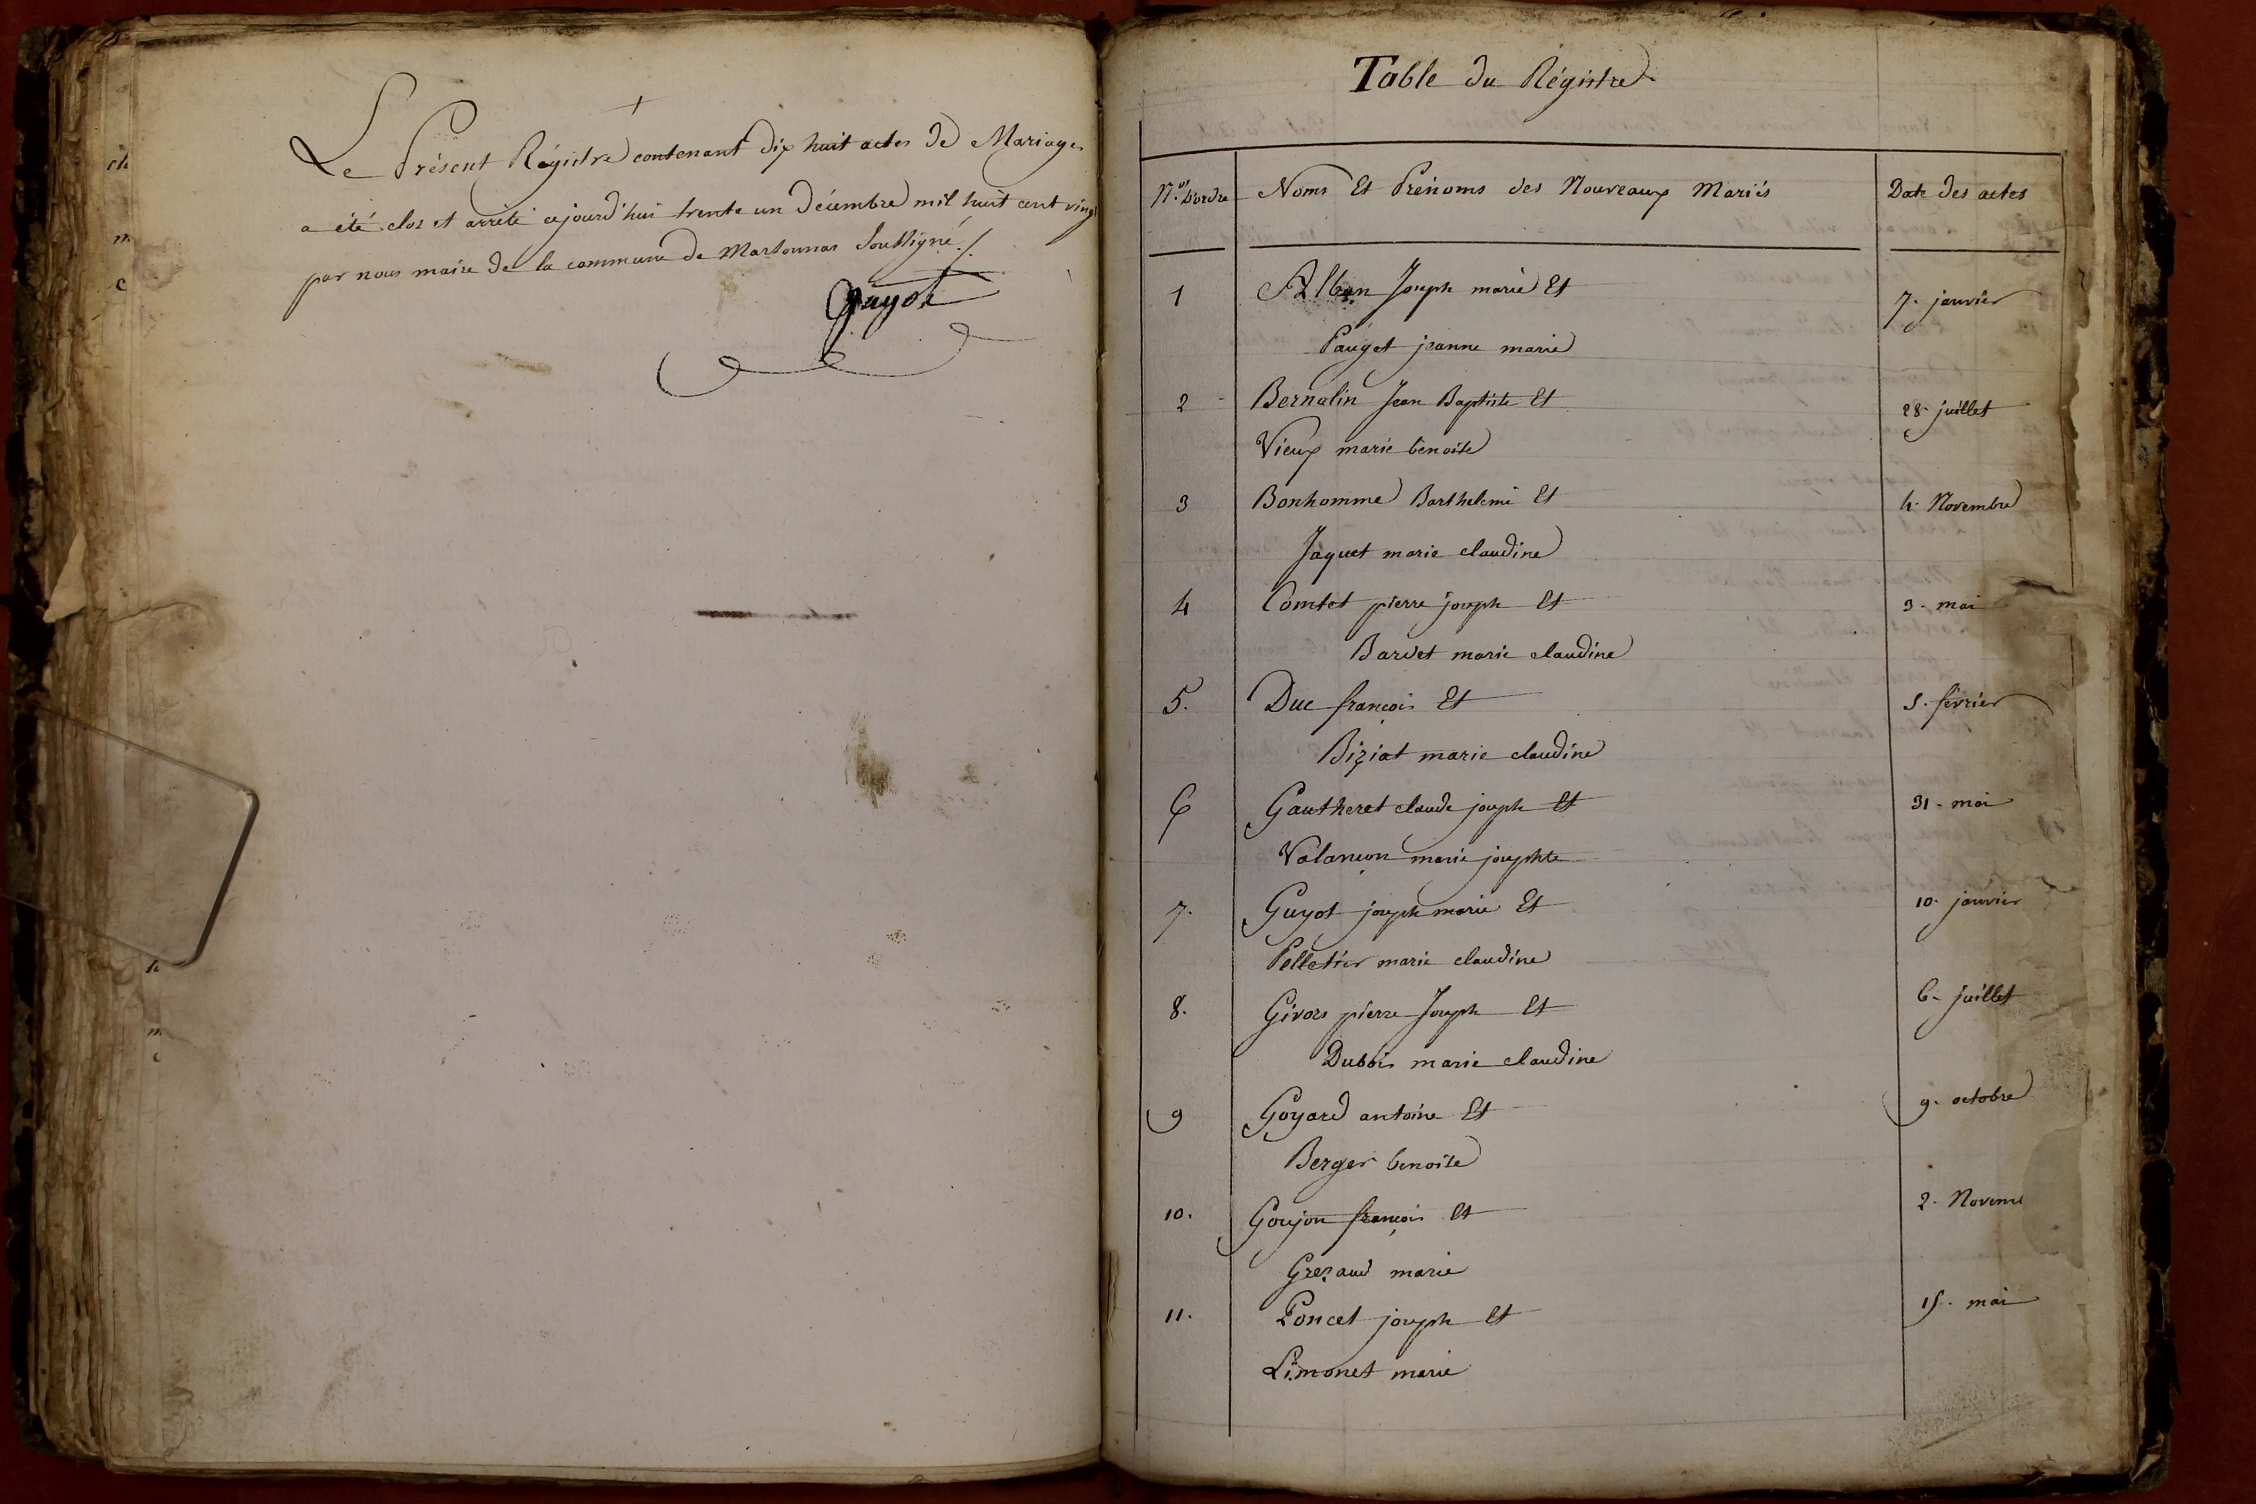 Le Présent Régistre contenant dix huit actes de Mariages
a été clos et arrêté cejourd'hui trente un décembre mil huit cent vingt
par nous maire de la commune de Marsonnas Soussigné ./.
Guyot
Table du Régistre
N.os D'ordre Noms Et Prénoms des Nouveaux Mariés Date des actes
1 Alban Joseph marie Et 7. janvier
Pauget jeanne marie
2 Bernalin Jean Baptiste Et 28. juillet
Vieux marie benoite
3 Bonhomme Barthelemi Et 4. Novembre
Jaquet marie claudine
4 Comtet pierre joseph Et 3. mai
Barvet marie claudine
5. Duc françois Et 5. février
Biziat marie claudine
6 Gautheret claude joseph Et 31. mai
Valançon marie josephte
7. Guyot joseph marie Et 10. janvier
Pelletier marie claudine
8. Givors pierre Joseph Et 6. juillet
Dubois marie claudine
9 Goyard antoine Et 9. octobre
Berger benoite
10. Goujon françois Et 2. Novem
Grezaud marie
11. Poncet joseph Et 15. mai
Limonet marie